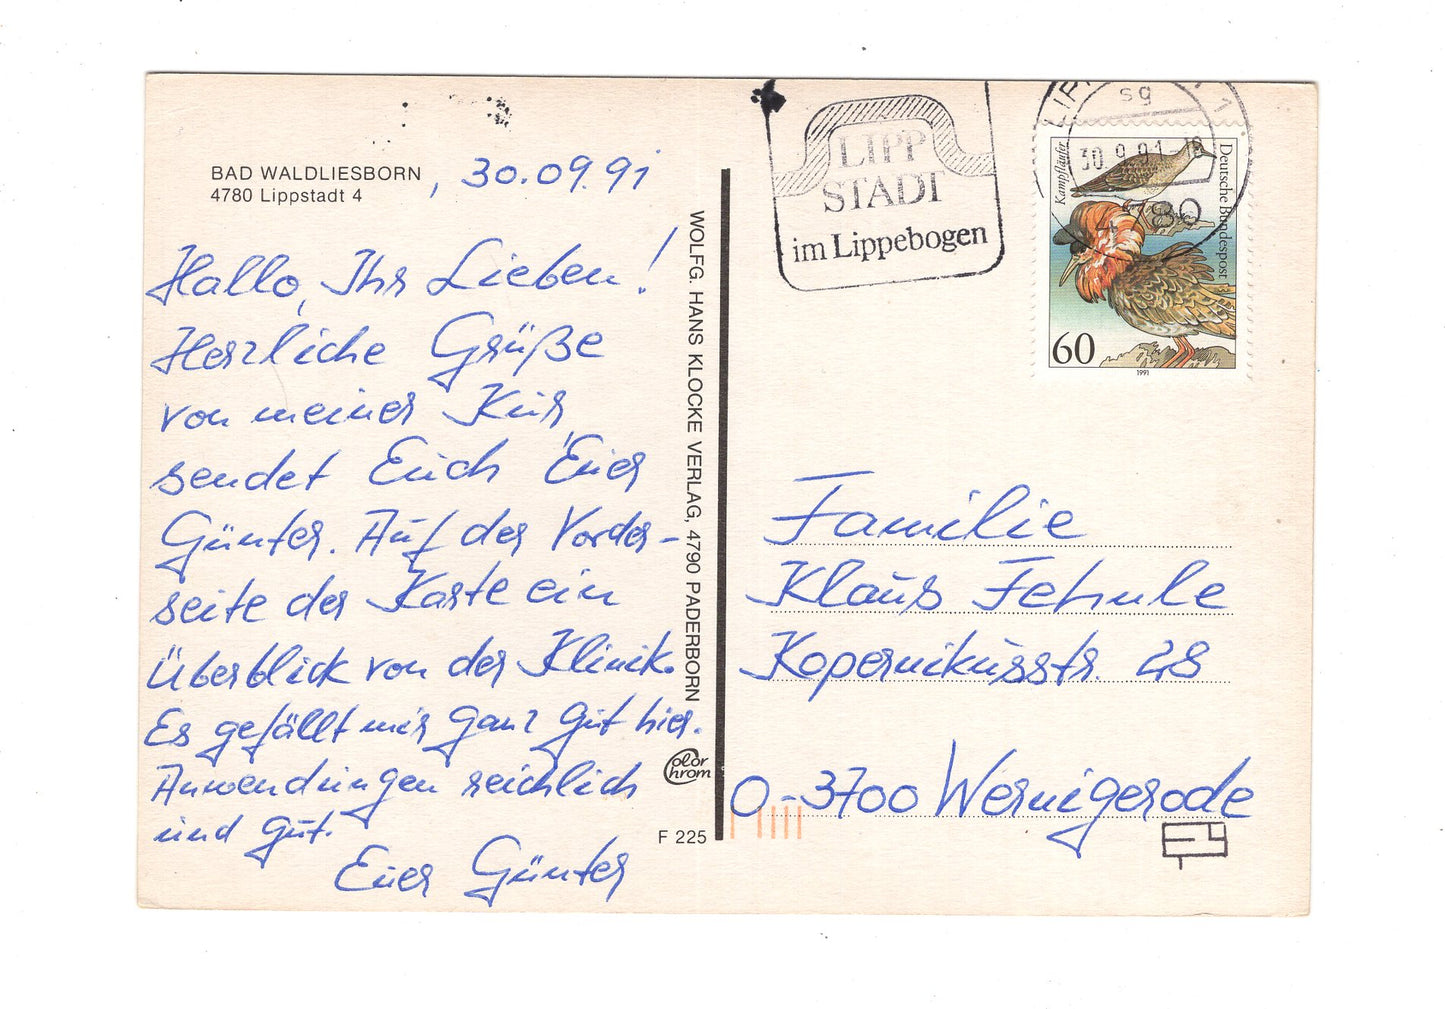 BAD WALDLIESBORN
4780 Lippstadt 4
, 30.09.91
Hallo, Ihr Lieben!
Herzliche Grüße
von meiner Kur,
sendet Euch Euer
Günter. Auf der Vorder-
seite der Karte ein
Überblick von der Klinik.
Es gefällt mir ganz gut hier.
Anwendungen reichlich
und gut.
Euer Günter
WOLFG. HANS KLOCKE VERLAG, 4790 PADERBORN
Color Chrom
F 225
LIPP
STADT
im Lippebogen
sg
30.9.91-18
4780
Kampfläufer
Deutsche Bundespost
60
1991
Familie
Klaus Fehule
Kopernikusstr. 28
O-3700 Wernigerode